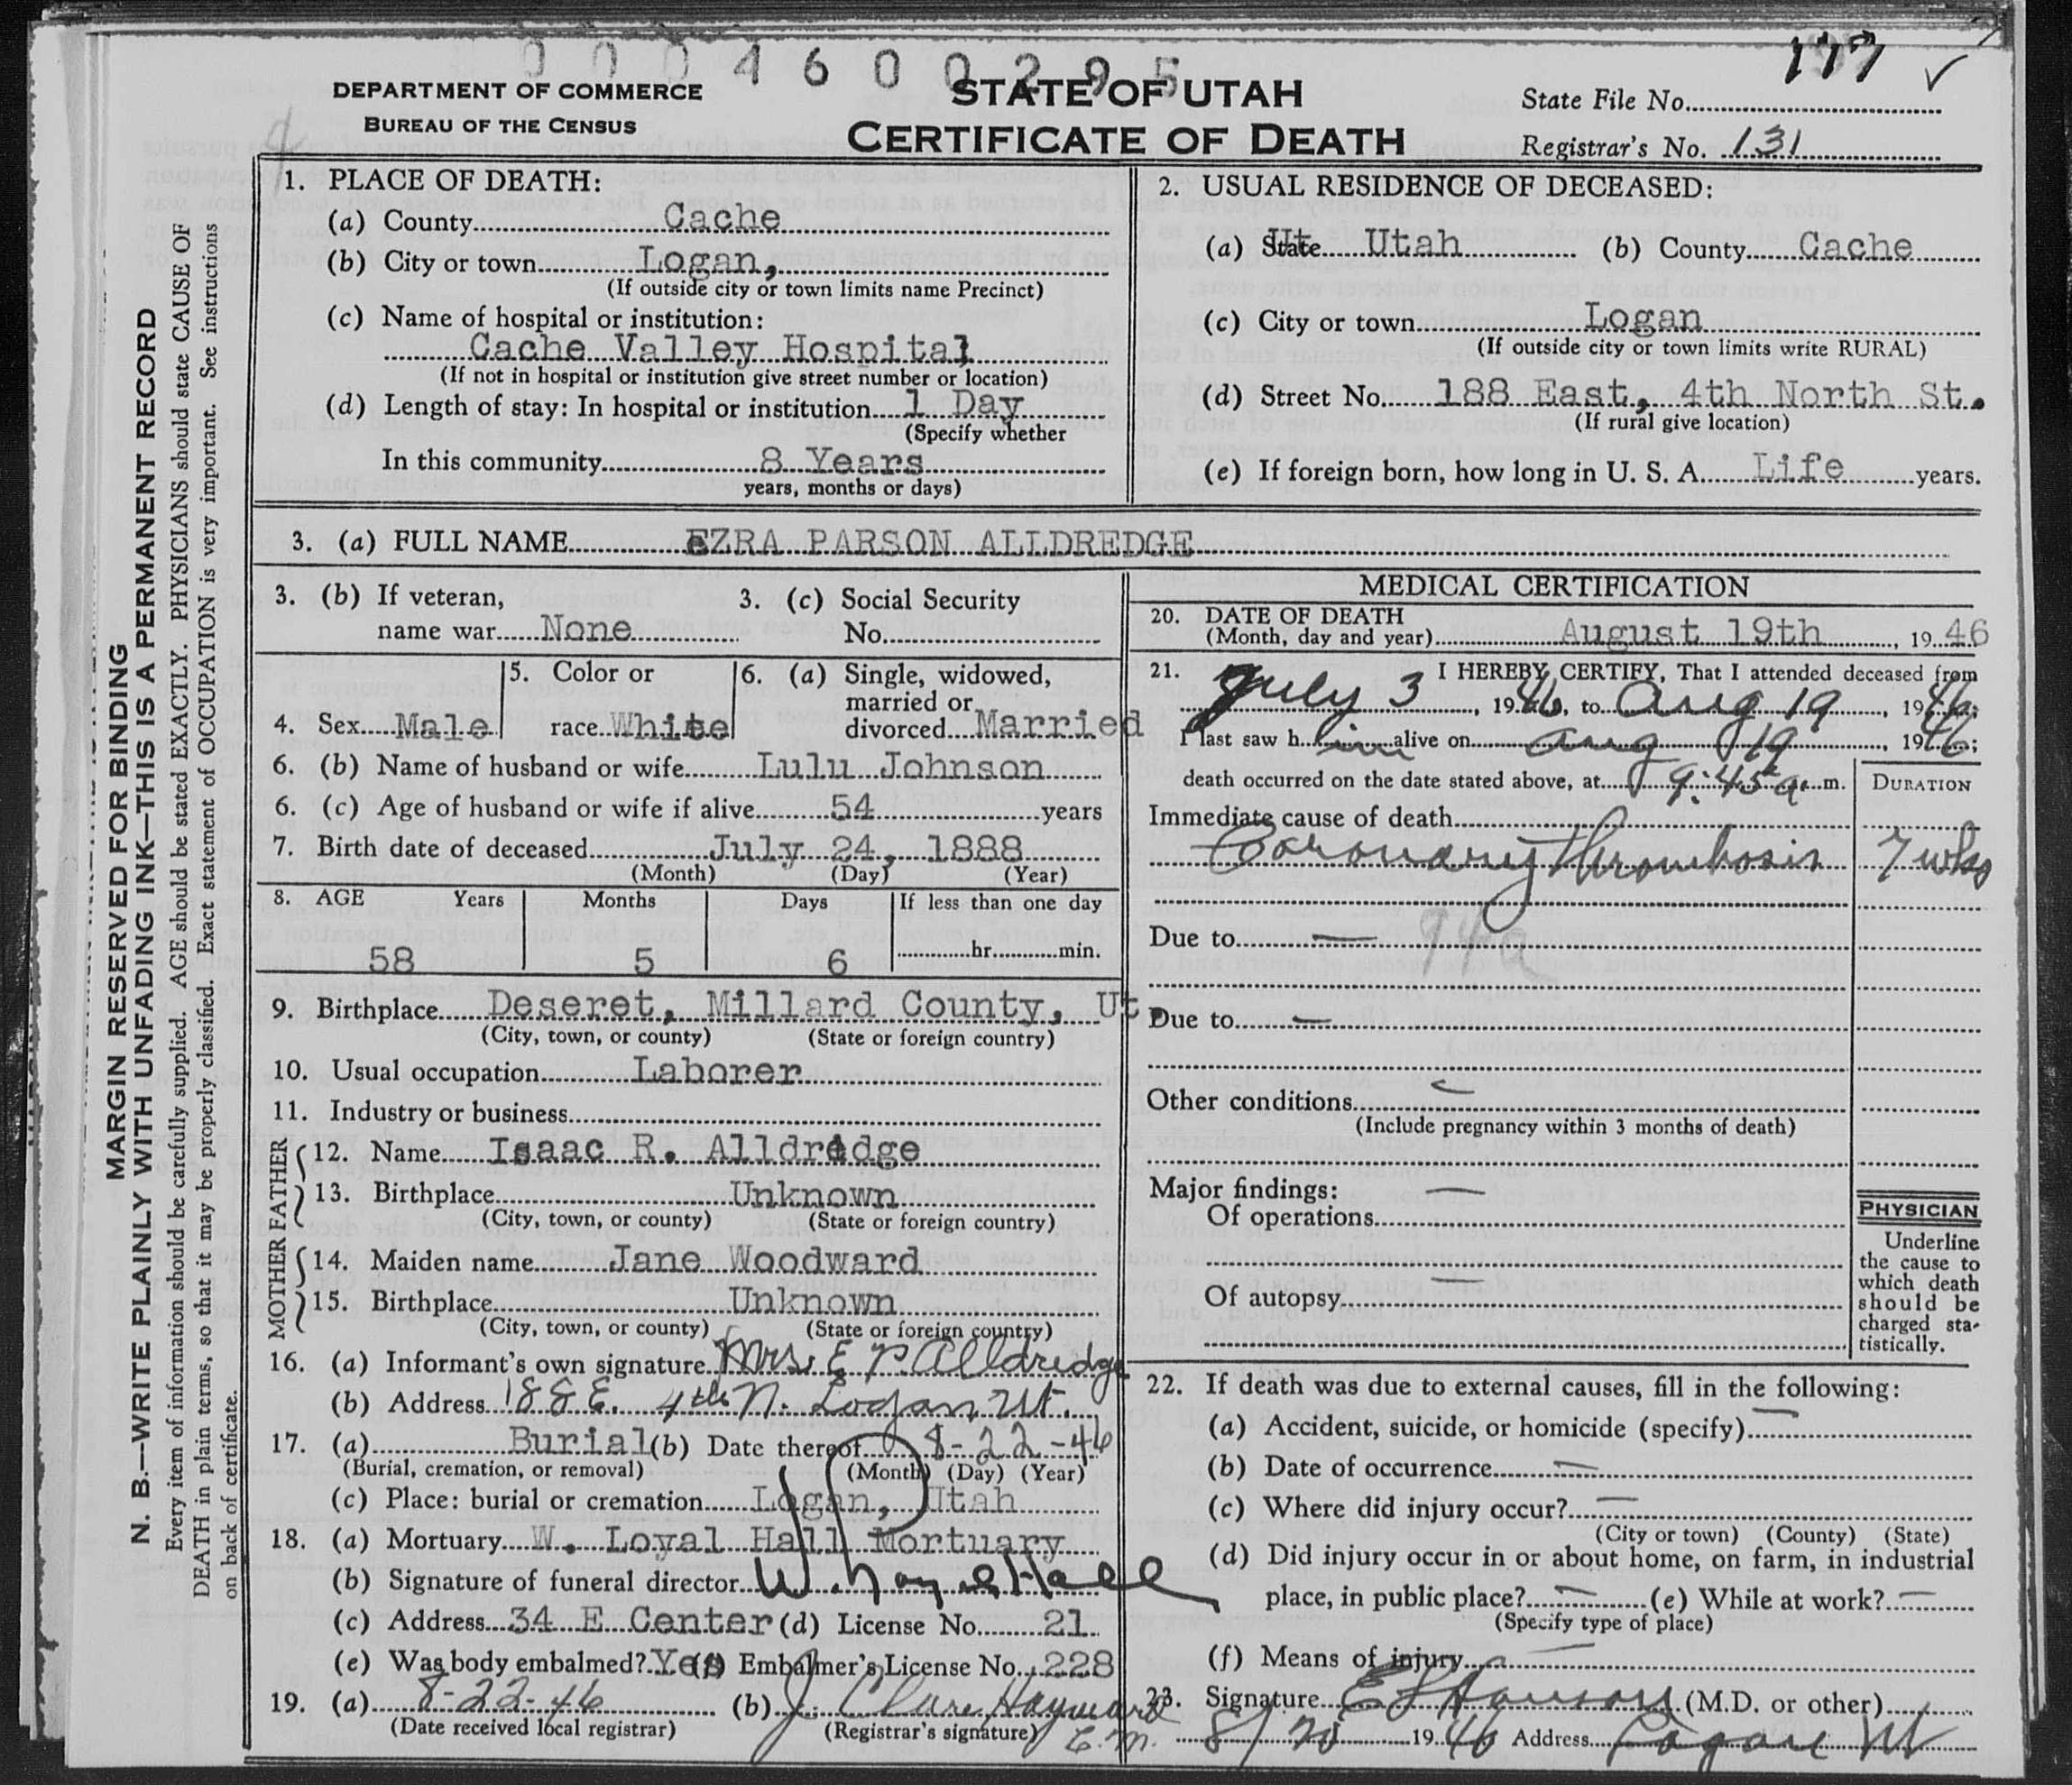 0004600295
177 ✓
DEPARTMENT OF COMMERCE
BUREAU OF THE CENSUS
STATE OF UTAH
CERTIFICATE OF DEATH
State File No.
Registrar's No. 131
MARGIN RESERVED FOR BINDING
N. B.—WRITE PLAINLY WITH UNFADING INK—THIS IS A PERMANENT RECORD
Every item of information should be carefully supplied. AGE should be stated EXACTLY. PHYSICIANS should state CAUSE OF
DEATH in plain terms, so that it may be properly classified. Exact statement of OCCUPATION is very important. See instructions
on back of certificate.
1. PLACE OF DEATH:
(a) County Cache
(b) City or town Logan,
(If outside city or town limits name Precinct)
(c) Name of hospital or institution:
Cache Valley Hospital
(If not in hospital or institution give street number or location)
(d) Length of stay: In hospital or institution 1 Day
(Specify whether
In this community 8 Years
years, months or days)
2. USUAL RESIDENCE OF DECEASED:
(a) State Utah (b) County Cache
(c) City or town Logan
(If outside city or town limits write RURAL)
(d) Street No. 188 East, 4th North St.
(If rural give location)
(e) If foreign born, how long in U. S. A. Life years.
3. (a) FULL NAME EZRA PARSON ALLDREDGE
3. (b) If veteran,
name war None
3. (c) Social Security
No.
4. Sex Male
5. Color or
race White
6. (a) Single, widowed,
married or
divorced Married
6. (b) Name of husband or wife Lulu Johnson
6. (c) Age of husband or wife if alive 54 years
7. Birth date of deceased July 24, 1888
(Month) (Day) (Year)
8. AGE Years Months Days If less than one day
58 5 6 hr. min.
9. Birthplace Deseret, Millard County, Ut.
(City, town, or county) (State or foreign country)
10. Usual occupation Laborer
11. Industry or business
FATHER
12. Name Isaac R. Alldredge
13. Birthplace Unknown
(City, town, or county) (State or foreign country)
MOTHER
14. Maiden name Jane Woodward
15. Birthplace Unknown
(City, town, or county) (State or foreign country)
16. (a) Informant's own signature Mrs. E P. Alldredge
(b) Address 188 E. 4th N. Logan Ut.
17. (a) Burial (b) Date thereof 8-22-46
(Burial, cremation, or removal) (Month) (Day) (Year)
(c) Place: burial or cremation Logan, Utah
18. (a) Mortuary W. Loyal Hall Mortuary
(b) Signature of funeral director W. Loyal Hall
(c) Address 34 E Center (d) License No. 21
(e) Was body embalmed? Yes (f) Embalmer's License No. 228
19. (a) 8-22-46 (b) J. Clare Hayward
(Date received local registrar) (Registrar's signature) E.M.
MEDICAL CERTIFICATION
20. DATE OF DEATH
(Month, day and year) August 19th, 1946
21. I HEREBY CERTIFY, That I attended deceased from
July 3, 1946, to Aug 19, 1946;
I last saw him alive on Aug 19, 1946;
death occurred on the date stated above, at 9:45 a.m.
DURATION
Immediate cause of death
Coronary Thrombosis 7 wks
94a
Due to —
Due to —
Other conditions —
(Include pregnancy within 3 months of death)
Major findings: —
Of operations
Of autopsy —
PHYSICIAN
Underline
the cause to
which death
should be
charged sta-
tistically.
22. If death was due to external causes, fill in the following:
(a) Accident, suicide, or homicide (specify) —
(b) Date of occurrence —
(c) Where did injury occur? —
(City or town) (County) (State)
(d) Did injury occur in or about home, on farm, in industrial
place, in public place? — (e) While at work? —
(Specify type of place)
(f) Means of injury —
23. Signature E L Hanson (M.D. or other)
8/20 1946 Address Logan Ut